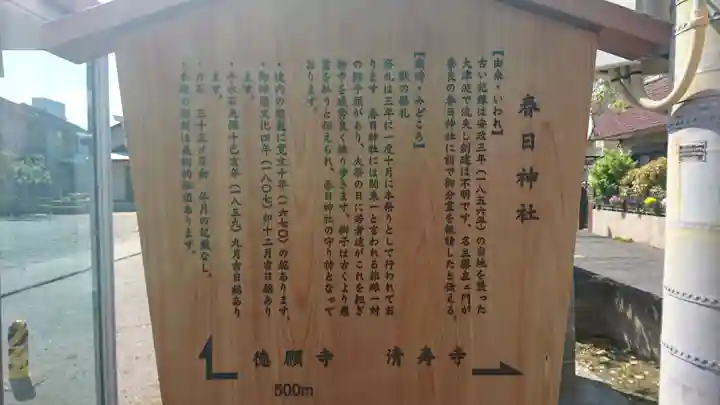 春日神社
【由来・いわれ】
古い記録は安政三年(一八五六年)の当地を襲った
大津波で流失し創建は不明です。名主藤
奈良の春日神社に詣で御分霊を勧請したと伝える。
【歳時・みどころ】
獅の祭礼
祭礼は三年に一度十月に本祭りとして行われてお
ります 春日神社には関東一と言われる雌雄一対
の獅子頭があり、大祭の日に若者達がこれを担ぎ
街中を威勢良く練り歩きます。獅子は古くより悪
霊を払うと伝えられ、春日神社の守り神となって
おります。
・境内の
に寛文十年(一六七〇)の銘あります。
・御神燈文化四年(一八〇七)卯十二月吉日銘あり
ます。
・手水石天保十己亥年(一八三九)九月吉日銘あり
ます。
・力石 三十五メ目和 年月の記載なし。
・本殿の
あります。
徳願寺
500m
清寿寺